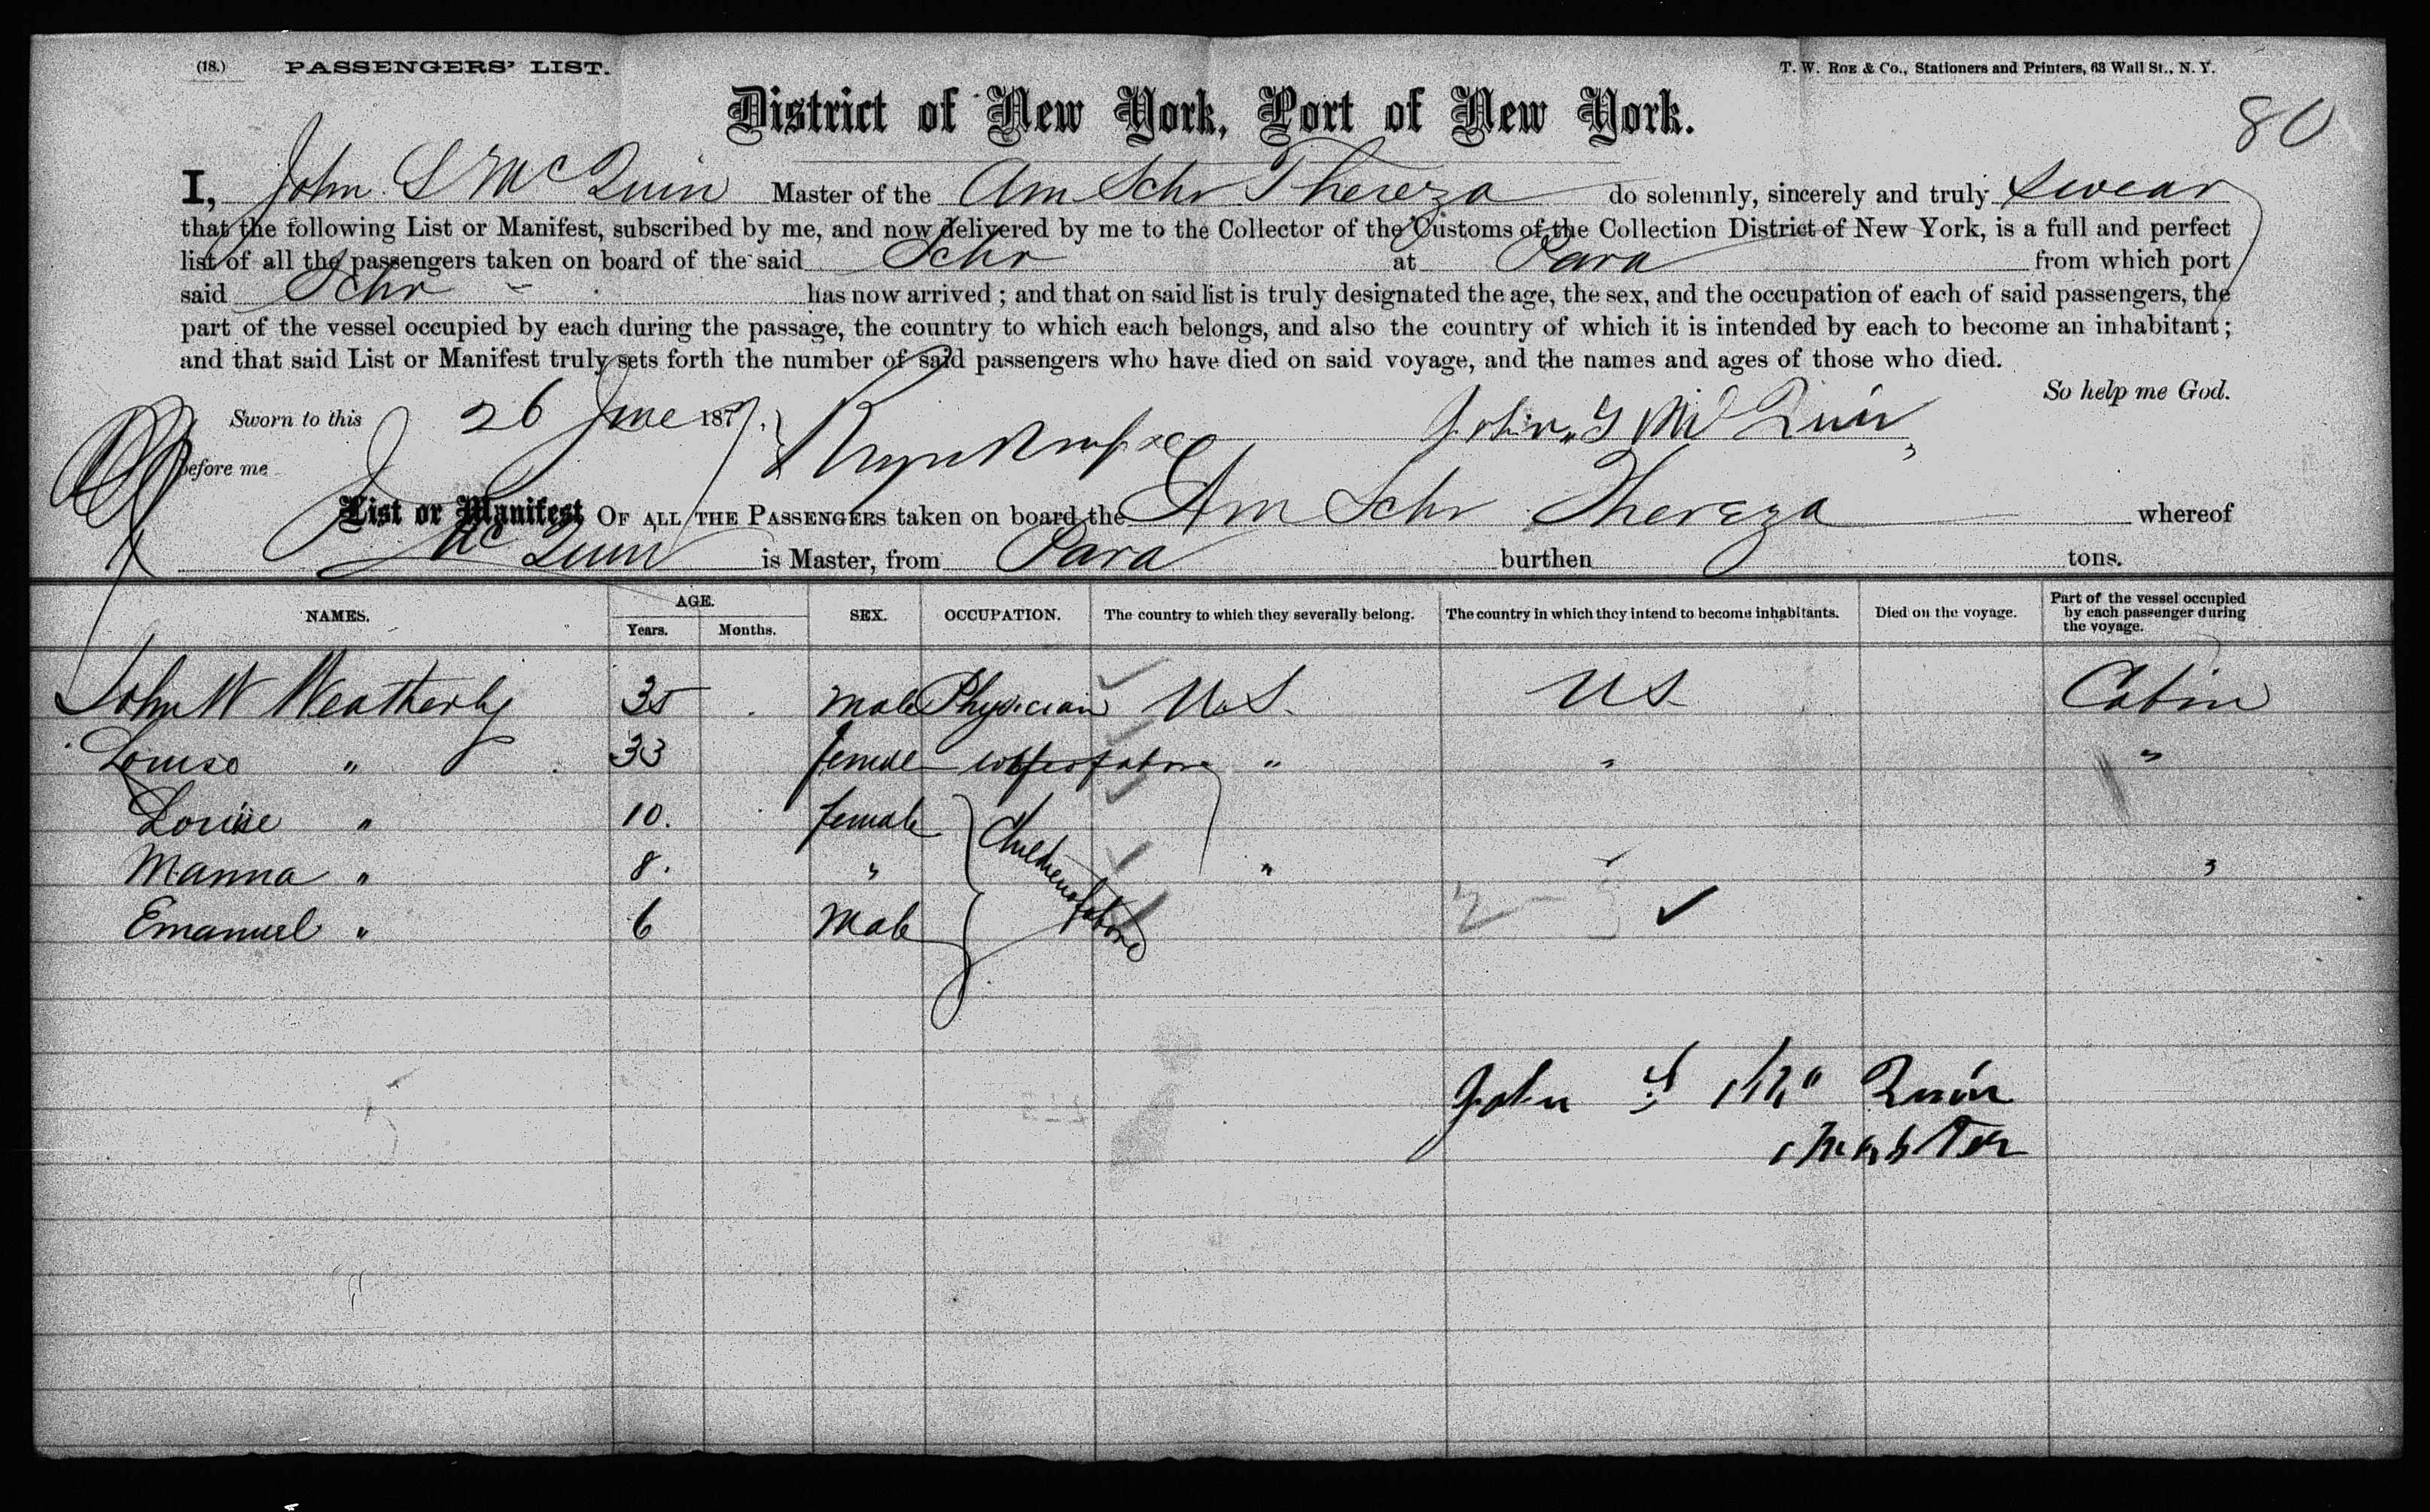 (18.) PASSENGERS' LIST. T. W. ROE & CO., Stationers and Printers, 63 Wall St., N. Y.
District of New York, Port of New York. 80
I, John S McQuin Master of the Am Schr Thereza do solemnly, sincerely and truly swear
that the following List or Manifest, subscribed by me, and now delivered by me to the Collector of the Customs of the Collection District of New York, is a full and perfect
list of all the passengers taken on board of the said Schr at Para from which port
said Schr has now arrived ; and that on said list is truly designated the age, the sex, and the occupation of each of said passengers, the
part of the vessel occupied by each during the passage, the country to which each belongs, and also the country of which it is intended by each to become an inhabitant ;
and that said List or Manifest truly sets forth the number of said passengers who have died on said voyage, and the names and ages of those who died.
So help me God.
Sworn to this 26 June 1877. John S Mc Quin
before me
List or Manifest OF ALL THE PASSENGERS taken on board the Am Schr Thereza whereof
J McQuin is Master, from Para burthen tons.
NAMES. AGE. Years. Months. SEX. OCCUPATION. The country to which they severally belong. The country in which they intend to become inhabitants. Died on the voyage. Part of the vessel occupied by each passenger during the voyage.
John W Weatherby 35 male Physician U.S. US Cabin
Louise " 33 female wife of above " " "
Louise " 10. female Children of above
Manna " 8. " " " "
Emanuel " 6 Male
John S Mc Quin
Master